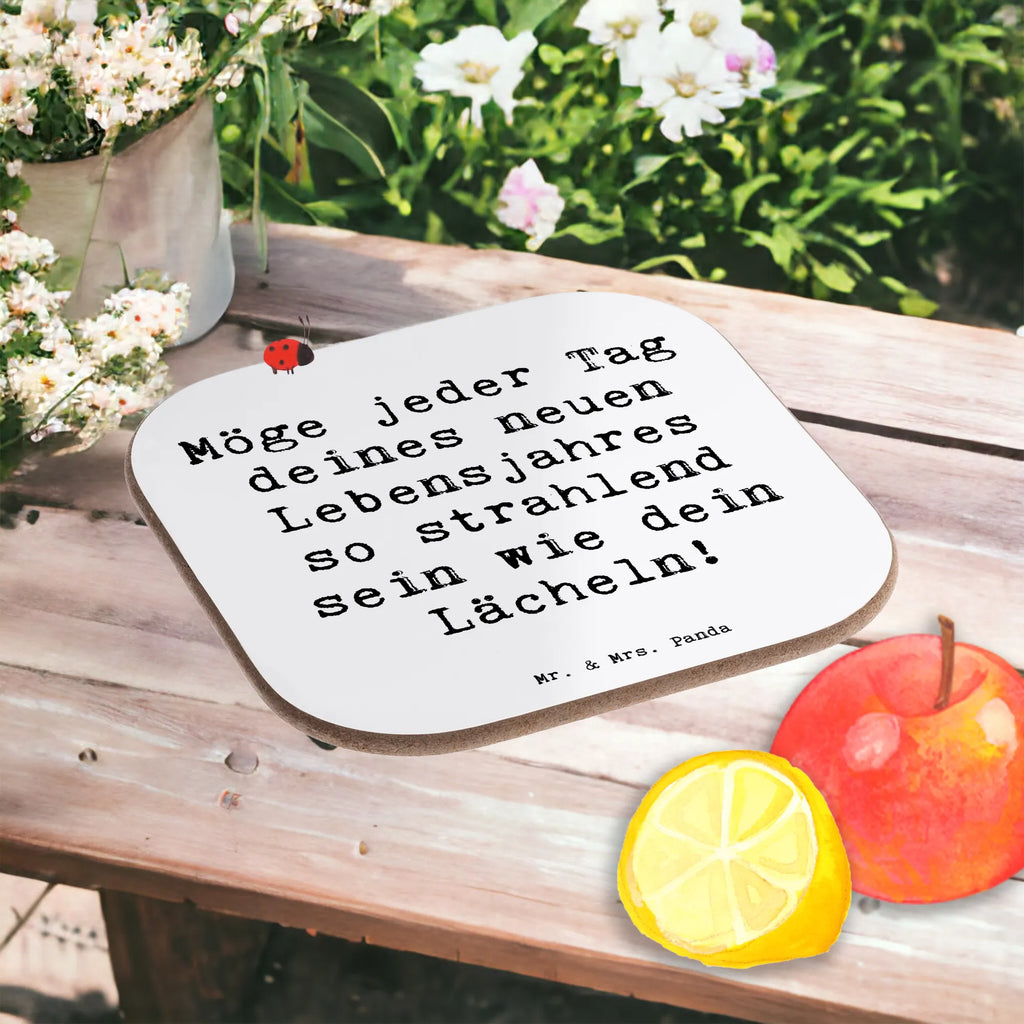 Möge jeder Tag
deines neuen
Lebensjahres
so strahlend
sein wie dein
Lächeln!
Mr. & Mrs. Panda